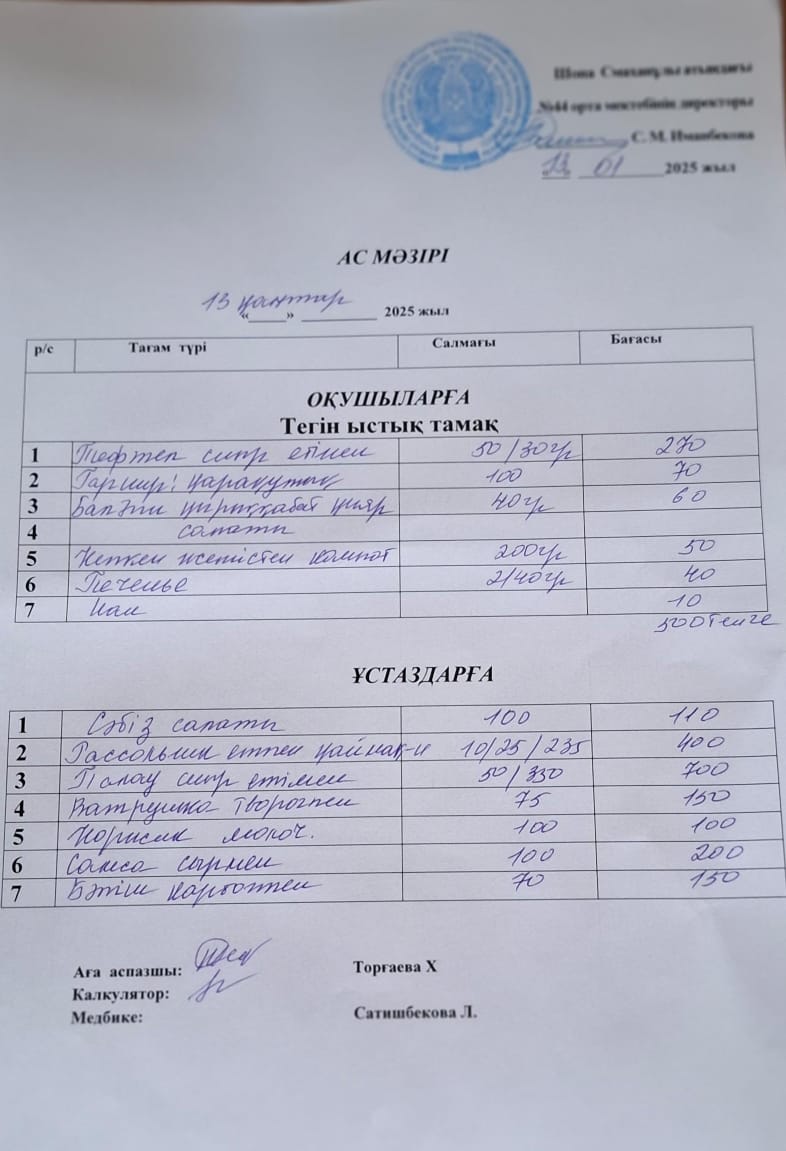 Шона Смаханұлы атындағы
№44 орта мектебінің директоры
С. М. Иманбекова
13 01 2025 жыл
АС МӘЗІРІ
13 қаңтар
«____» __________ 2025 жыл
р/с Тағам түрі Салмағы Бағасы
ОҚУШЫЛАРҒА
Тегін ыстық тамақ
1 Тефтел сиыр етімен 50/30гр 270
2 Гарнир: қарақұмық 100 70
3 Балғын қырыққабат қияр 40гр 60
4 салаты
5 Кепкен жемістен компот 200гр 50
6 Печенье 2/40гр 40
7 Нан 10
500 теңге
ҰСТАЗДАРҒА
1 Сәбіз салаты 100 110
2 Рассольник етпен қаймақ-н 10/25/235 400
3 Палау сиыр етімен 50/350 700
4 Ватрушка творогпен 75 150
5 Коржик молоч. 100 100
6 Самса сырмен 100 200
7 Бәтіш картоппен 70 150
Аға аспазшы: Торғаева Х
Калкулятор:
Медбике: Сатишбекова Л.